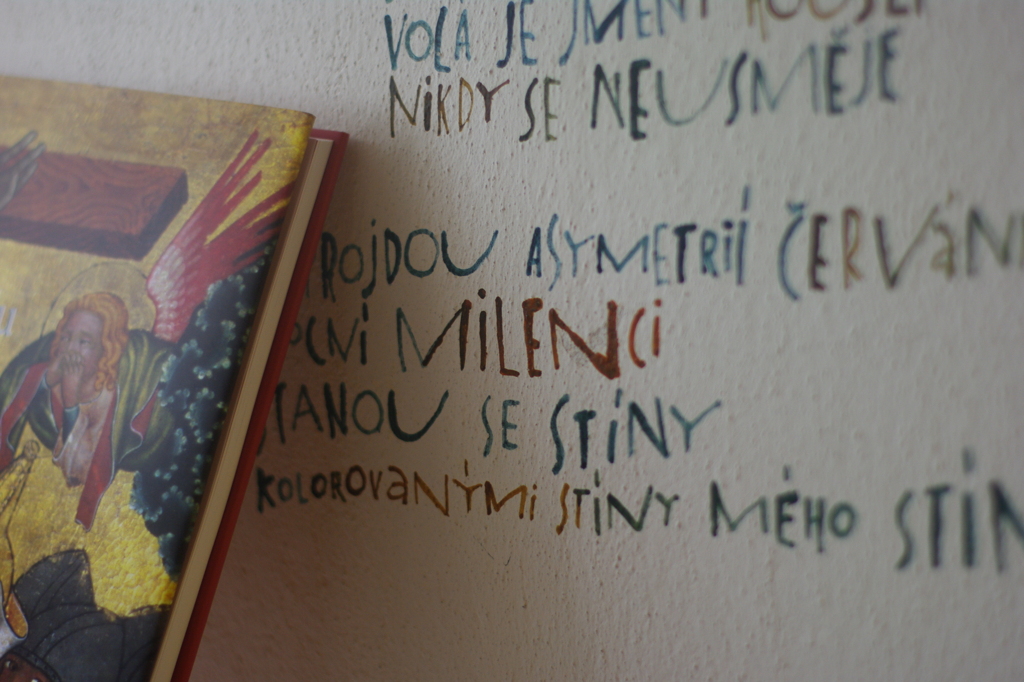 VOLÁ JE JMÉNY
NIKDY SE NEUSMĚJE
PROJDOU ASYMETRIÍ ČERVÁN
CNÍ MILENCI
STANOU SE STÍNY
KOLOROVANÝMI STÍNY MÉHO STÍN